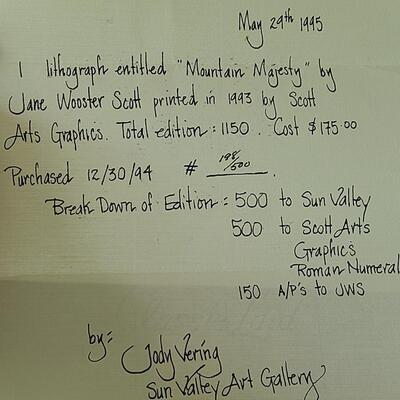 May 29th 1995
1 lithograph entitled "Mountain Majesty" by
Jane Wooster Scott printed in 1993 by Scott
Arts Graphics. Total edition: 1150. Cost $175.00
Purchased 12/30/94 # 198/500.
Break Down of Edition: 500 to Sun Valley
500 to Scott Arts
Graphics
Roman Numeral
150 A/P's to JWS
by: Jody Vering
Sun Valley Art Gallery